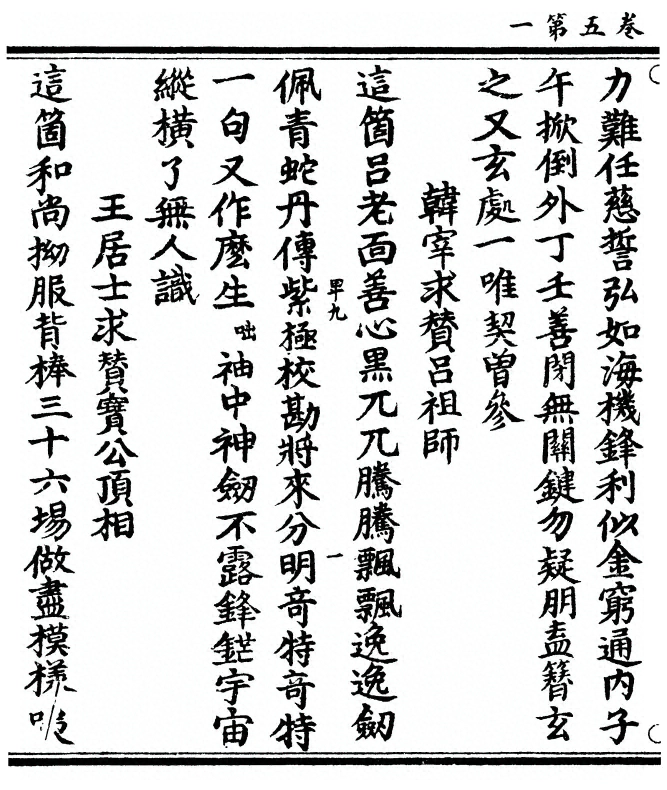 一第五卷
力難任慈誓弘如海機鋒利似金窮通內子
午掀倒外丁壬善閉無關鍵勿疑朋盍簪玄
之又玄處一唯契曽參
韓宰求賛呂祖師
這箇呂老面善心黒兀兀騰騰飄飄逸逸劒
佩青蛇丹傳紫極校勘將來分明竒特竒特
一句又作麽生咄袖中神劒不露鋒鋩宇宙
縱橫了無人識
王居士求賛寳公頂相
這箇和尚拗服背棒三十六場做盡模様